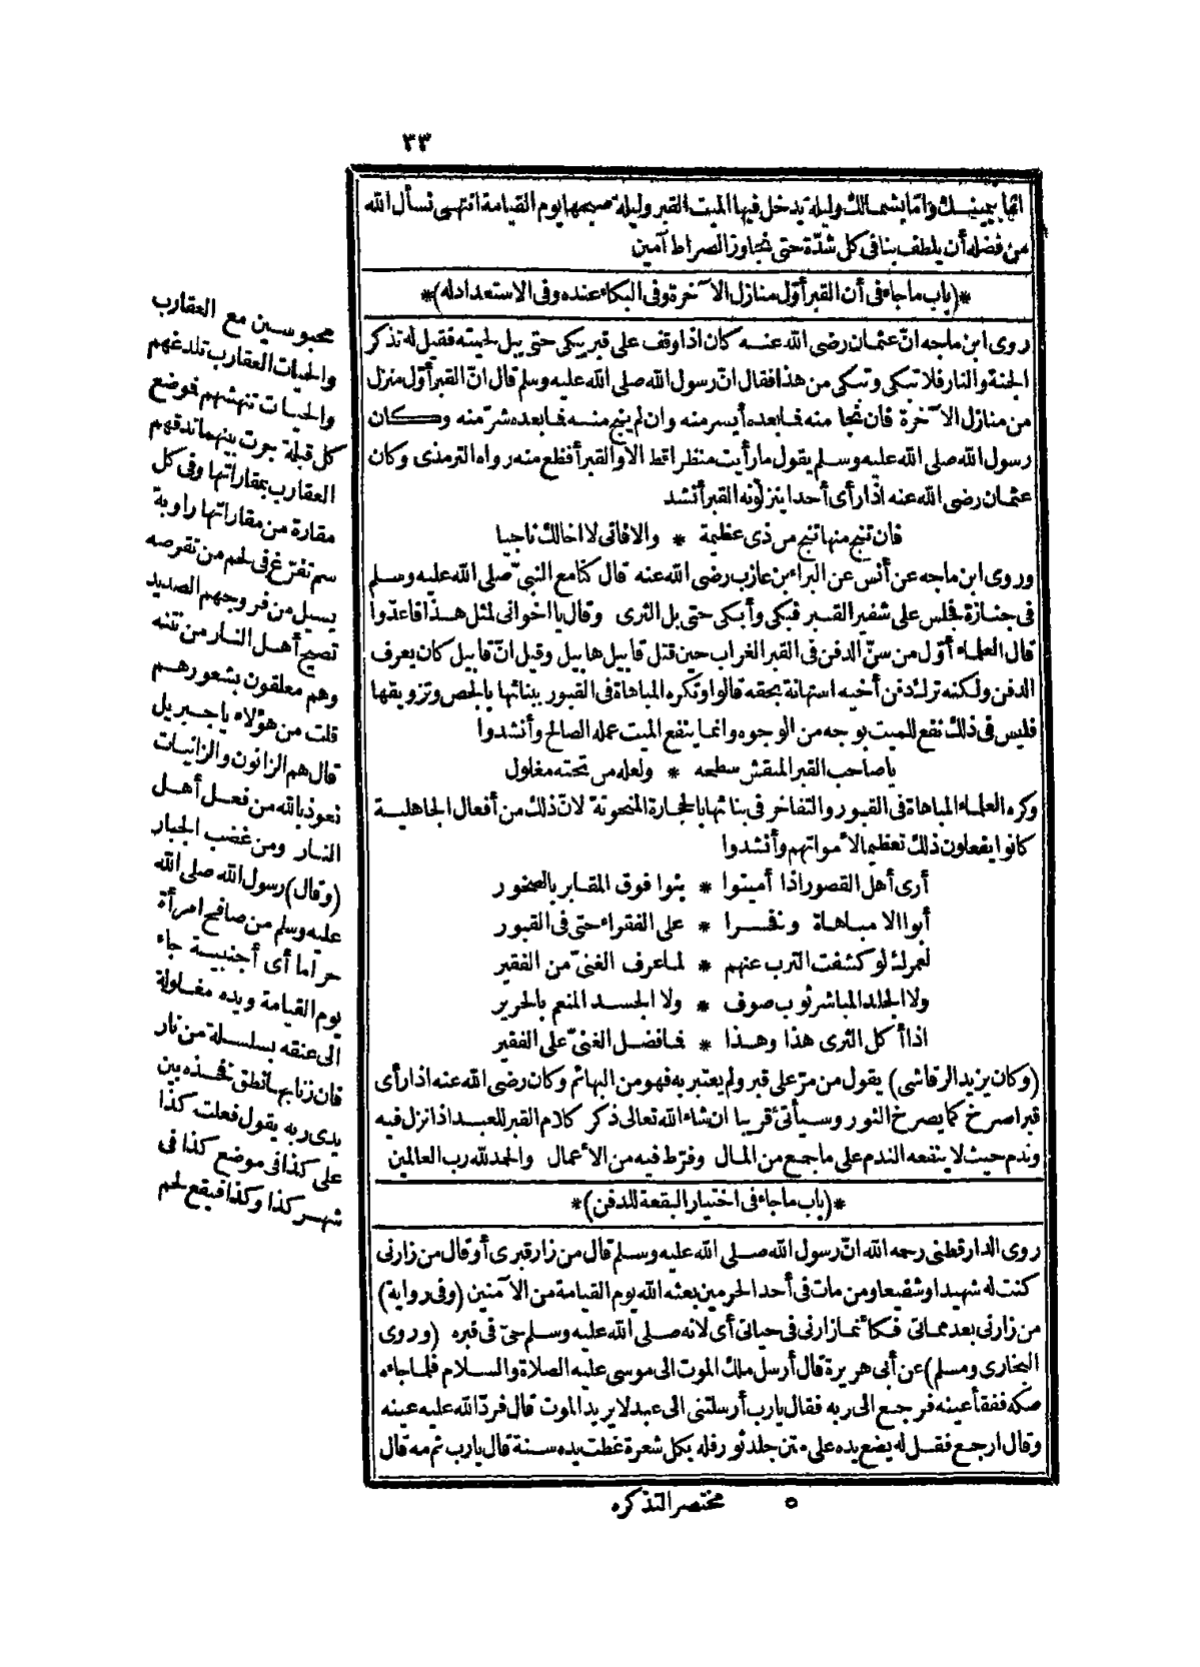 ٣٣
اما بيمينك واما بشمالك وليلة يدخل فيها الميت القبر وليلة صبيحها يوم القيامة انتهى نسأل الله
من فضله أن يلطف بنا فى كل شدّة حتى نجاوز الصراط آمين
*(باب ما جاء فى أن القبر أوّل منازل الآخرة وفى البكاء عنده وفى الاستعداد له)*
روى ابن ماجه انّ عثمان رضى الله عنه كان اذا وقف على قبر يبكى حتى يبل لحيته فقيل له تذكر
الجنة والنار فلا تبكى وتبكى من هذا فقال انّ رسول الله صلى الله عليه وسلم قال انّ القبر أوّل منزل
من منازل الآخرة فان نجا منه فما بعده أيسر منه وان لم ينج منه فما بعده شرّ منه وكان
رسول الله صلى الله عليه وسلم يقول ما رأيت منظرا قط الا والقبر أفظع منه رواه الترمذى وكان
عثمان رضى الله عنه اذا رأى أحدا ينزلونه القبر أنشد
فان تنج منها تنج من ذى عظيمة * والا فانى لا اخالك ناجيا
وروى ابن ماجه عن أنس عن البراء بن عازب رضى الله عنه قال كنا مع النبىّ صلى الله عليه وسلم
فى جنازة فجلس على شفير القبر فبكى وأبكى حتى بل الثرى وقال يا اخوانى لمثل هذا فاعدّوا
قال العلماء أوّل من سنّ الدفن فى القبر الغراب حين قتل قابيل هابيل وقيل انّ قابيل كان يعرف
الدفن ولكنه ترك دفن أخيه استهانة بحقه قالوا وتكره المباهاة فى القبور ببنائها بالجص وتزويقها
فليس فى ذلك نفع للميت بوجه من الوجوه وانما ينفع الميت عمله الصالح وأنشدوا
يا صاحب القبر المنقش سطحه * ولعله من تحته مغلول
وكره العلماء المباهاة فى القبور والتفاخر فى بنائها بالحجارة المنحوتة لانّ ذلك من أفعال الجاهلية
كانوا يفعلون ذلك تعظيما لأمواتهم وأنشدوا
أرى أهل القصور اذا أميتوا * بنوا فوق المقابر بالصخور
أبوا الا مباهاة وفخرا * على الفقراء حتى فى القبور
لعمرك لو كشفت الترب عنهم * لما عرف الغنىّ من الفقير
ولا الجلد المباشر ثوب صوف * ولا الجسد المنعم بالحرير
اذا أكل الثرى هذا وهذا * فما فضل الغنىّ على الفقير
(وكان يزيد الرقاشى) يقول من مرّ على قبر ولم يعتبر به فهو من البهائم وكان رضى الله عنه اذا رأى
قبرا صرخ كما يصرخ الثور وسيأتى قريبا ان شاء الله تعالى ذكر كلام القبر للعبد اذا نزل فيه
وندم حيث لا ينفعه الندم على ما جمع من المال وفرّط فيه من الأعمال والحمد لله رب العالمين
*(باب ما جاء فى اختيار البقعة للدفن)*
روى الدارقطنى رحمه الله انّ رسول الله صلى الله عليه وسلم قال من زار قبرى أو قال من زارنى
كنت له شهيدا وشفيعا ومن مات فى أحد الحرمين بعثه الله يوم القيامة من الآمنين (وفى رواية)
من زارنى بعد مماتى فكأنما زارنى فى حياتى أى لانه صلى الله عليه وسلم حىّ فى قبره (وروى
البخارى ومسلم) عن أبى هريرة قال أرسل ملك الموت الى موسى عليه الصلاة والسلام فلما جاءه
صكه ففقأ عينه فرجع الى ربه فقال يا رب أرسلتنى الى عبد لا يريد الموت قال فردّ الله عليه عينه
وقال ارجع فقل له يضع يده على متن جلد ثور فله بكل شعرة غطت يده سنة قال يا رب ثم مه قال
٥ مختصر التذكره
محبوسين مع العقارب
والحيات العقارب تلدغهم
والحيات تنهشهم فوضع
كل قبلة جرت بينهما تدقهم
العقارب بمقاراتها وفى كل
مقارة من مقاراتها راوية
سم تفرّغ فى لحم من تقرصه
يسيل من فروجهم الصديد
تصيح أهل النار من نتنه
وهم معلقون بشعورهم
قلت من هؤلاء يا جبريل
قال هم الزانون والزانيات
نعوذ بالله من فعل أهل
النار ومن غضب الجبار
(وقال) رسول الله صلى الله
عليه وسلم من صافح امرأة
حراما أى أجنبية جاء
يوم القيامة ويده مغلولة
الى عنقه بسلسلة من نار
فان زنا بها نطق فخذه بين
يدى ربه يقول فعلت كذا
على كذا فى موضع كذا فى
شهر كذا وكذا فيقع لحم